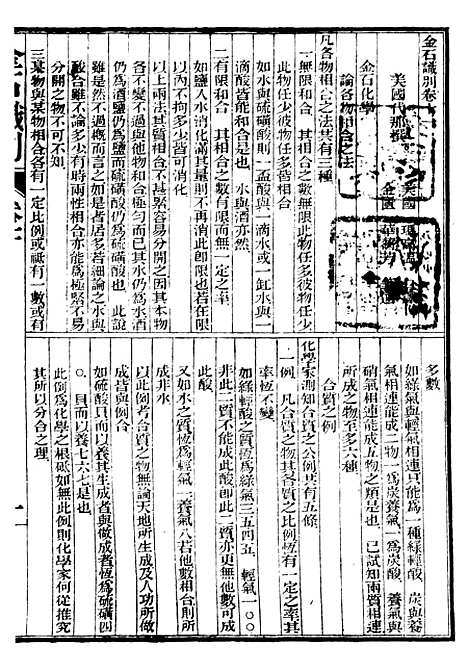 金石識別卷
美國代那撰
美國瑪高溫
金匱華蘅芳
金石化學
論各物相合之法
凡各物相合之法共有三種
一無限和合 其相合之數無限此物任多彼物任少
此物任少彼物任多皆相合
如水與硫磺酸則一盂酸與一滴水或一缸水與一
滴酸皆能和合是也 水與酒亦然
二有限和合 其相合之數有限而無一定之率
如鹽入水消化滿其量則不再消此即限也若在限
以內不拘多少皆可消化
以上兩法其質相合不甚緊容易分開之因其本物
各不變不過與他物和合極勻而已其水仍爲水酒
仍爲酒鹽仍爲硫磺酸仍爲硫磺酸也 此說
雖是然不過概而言之如是者居多若細論之水與
酸合雖不論多少有時兩性相合亦能爲極緊不易
分開之物不可不知
三某物與某物相合各有一定比例或祇有一數或有
多數
如綠氣與輕氣相連只能成一種綠輕酸 炭與養
氣相連能成二物一爲炭養氣一爲炭酸 養氣與
硝氣相連能成五物之類是也 已試知兩質相連
所成之物至多六種
合質之例
化學家測知合質之公例共有五條
一例 凡合質之物其各質之比例恆有一定之率其
率恆不變
如綠輕酸之質恆爲綠氣三五四五 輕氣一〇〇
非此二質不能成此酸即此二質亦更無他數可成
此酸
又如水之質恆爲輕氣一養氣八若他數相合則
成非水
以此例考合質之物無論天地所生成及人功所做
成皆與例合
如硫酸貝而以養其生成者與做成者恆爲硫磺四
〇貝而以養七六七是也
此例爲化學之根柢如無此例則化學家何從推究
其所以分合之理
金石識別